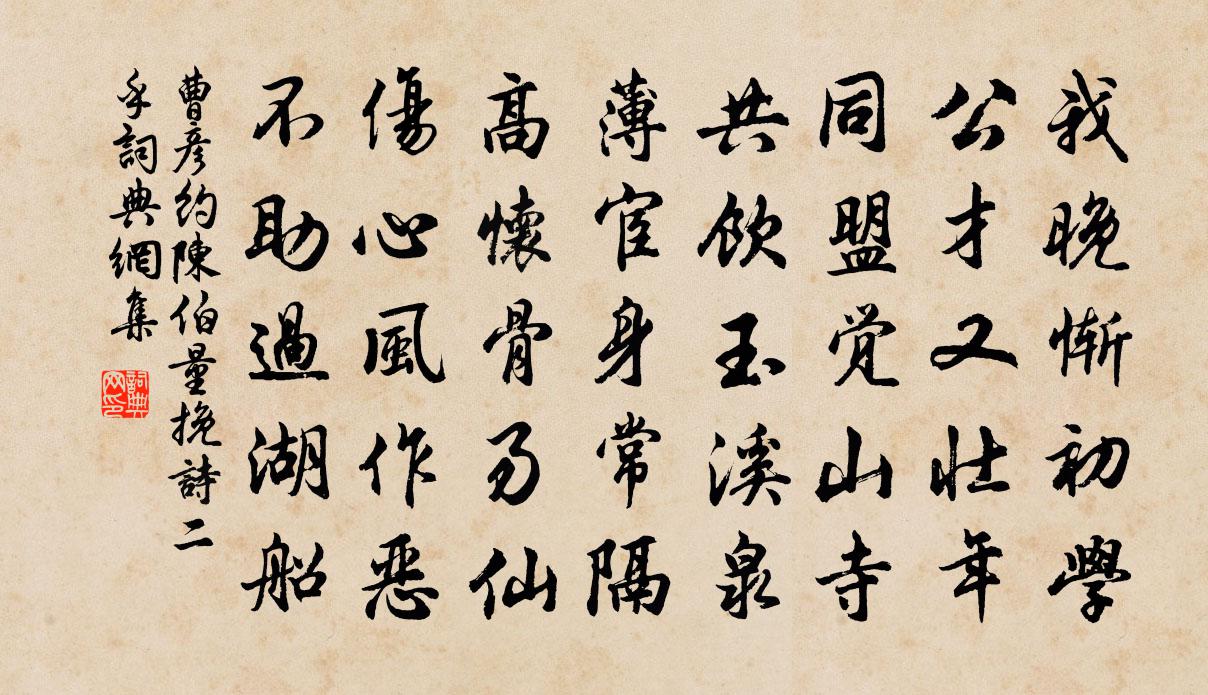 我晚惭初學
公才又壮年
同盟覚山寺
共飲玉溪泉
薄宦身常隔
高懷骨易仙
傷心風作惡
不助過湖船
曹彦約陳伯量挽詩二
乎詞典網集
詞典
网印